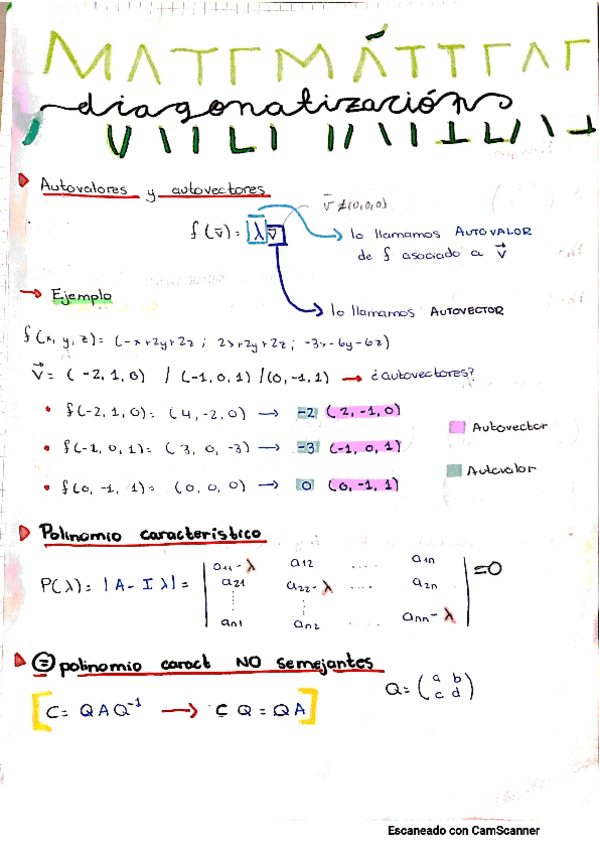 diagonalización
Autovalores y autovectores
v̄ ≠ (0,0,0)
f(v̄) = λ v̄
lo llamamos AUTOVALOR
de f asociado a v⃗
lo llamamos AUTOVECTOR
Ejemplo
f(x, y, z) = (-x+2y+2z ; 2x+2y+2z ; -3x-6y-6z)
v⃗ = (-2,1,0) / (-1,0,1) / (0,-1,1) → ¿autovectores?
• f(-2,1,0) = (4,-2,0) → -2 (2,-1,0)
• f(-1,0,1) = (3, 0, -3) → -3 (-1, 0, 1)
• f(0, -1, 1) = (0, 0, 0) → 0 (0, -1, 1)
Autovector
Autovalor
Polinomio característico
P(λ) = |A - I λ| =
a11 - λ a12 .... a1n
a21 a22 - λ .... a2n
an1 an2 .... ann - λ
=0
= polinomio caract NO semejantes
Q = (a b
c d)
[C = Q A Q⁻¹ → C Q = Q A]
Escaneado con CamScanner